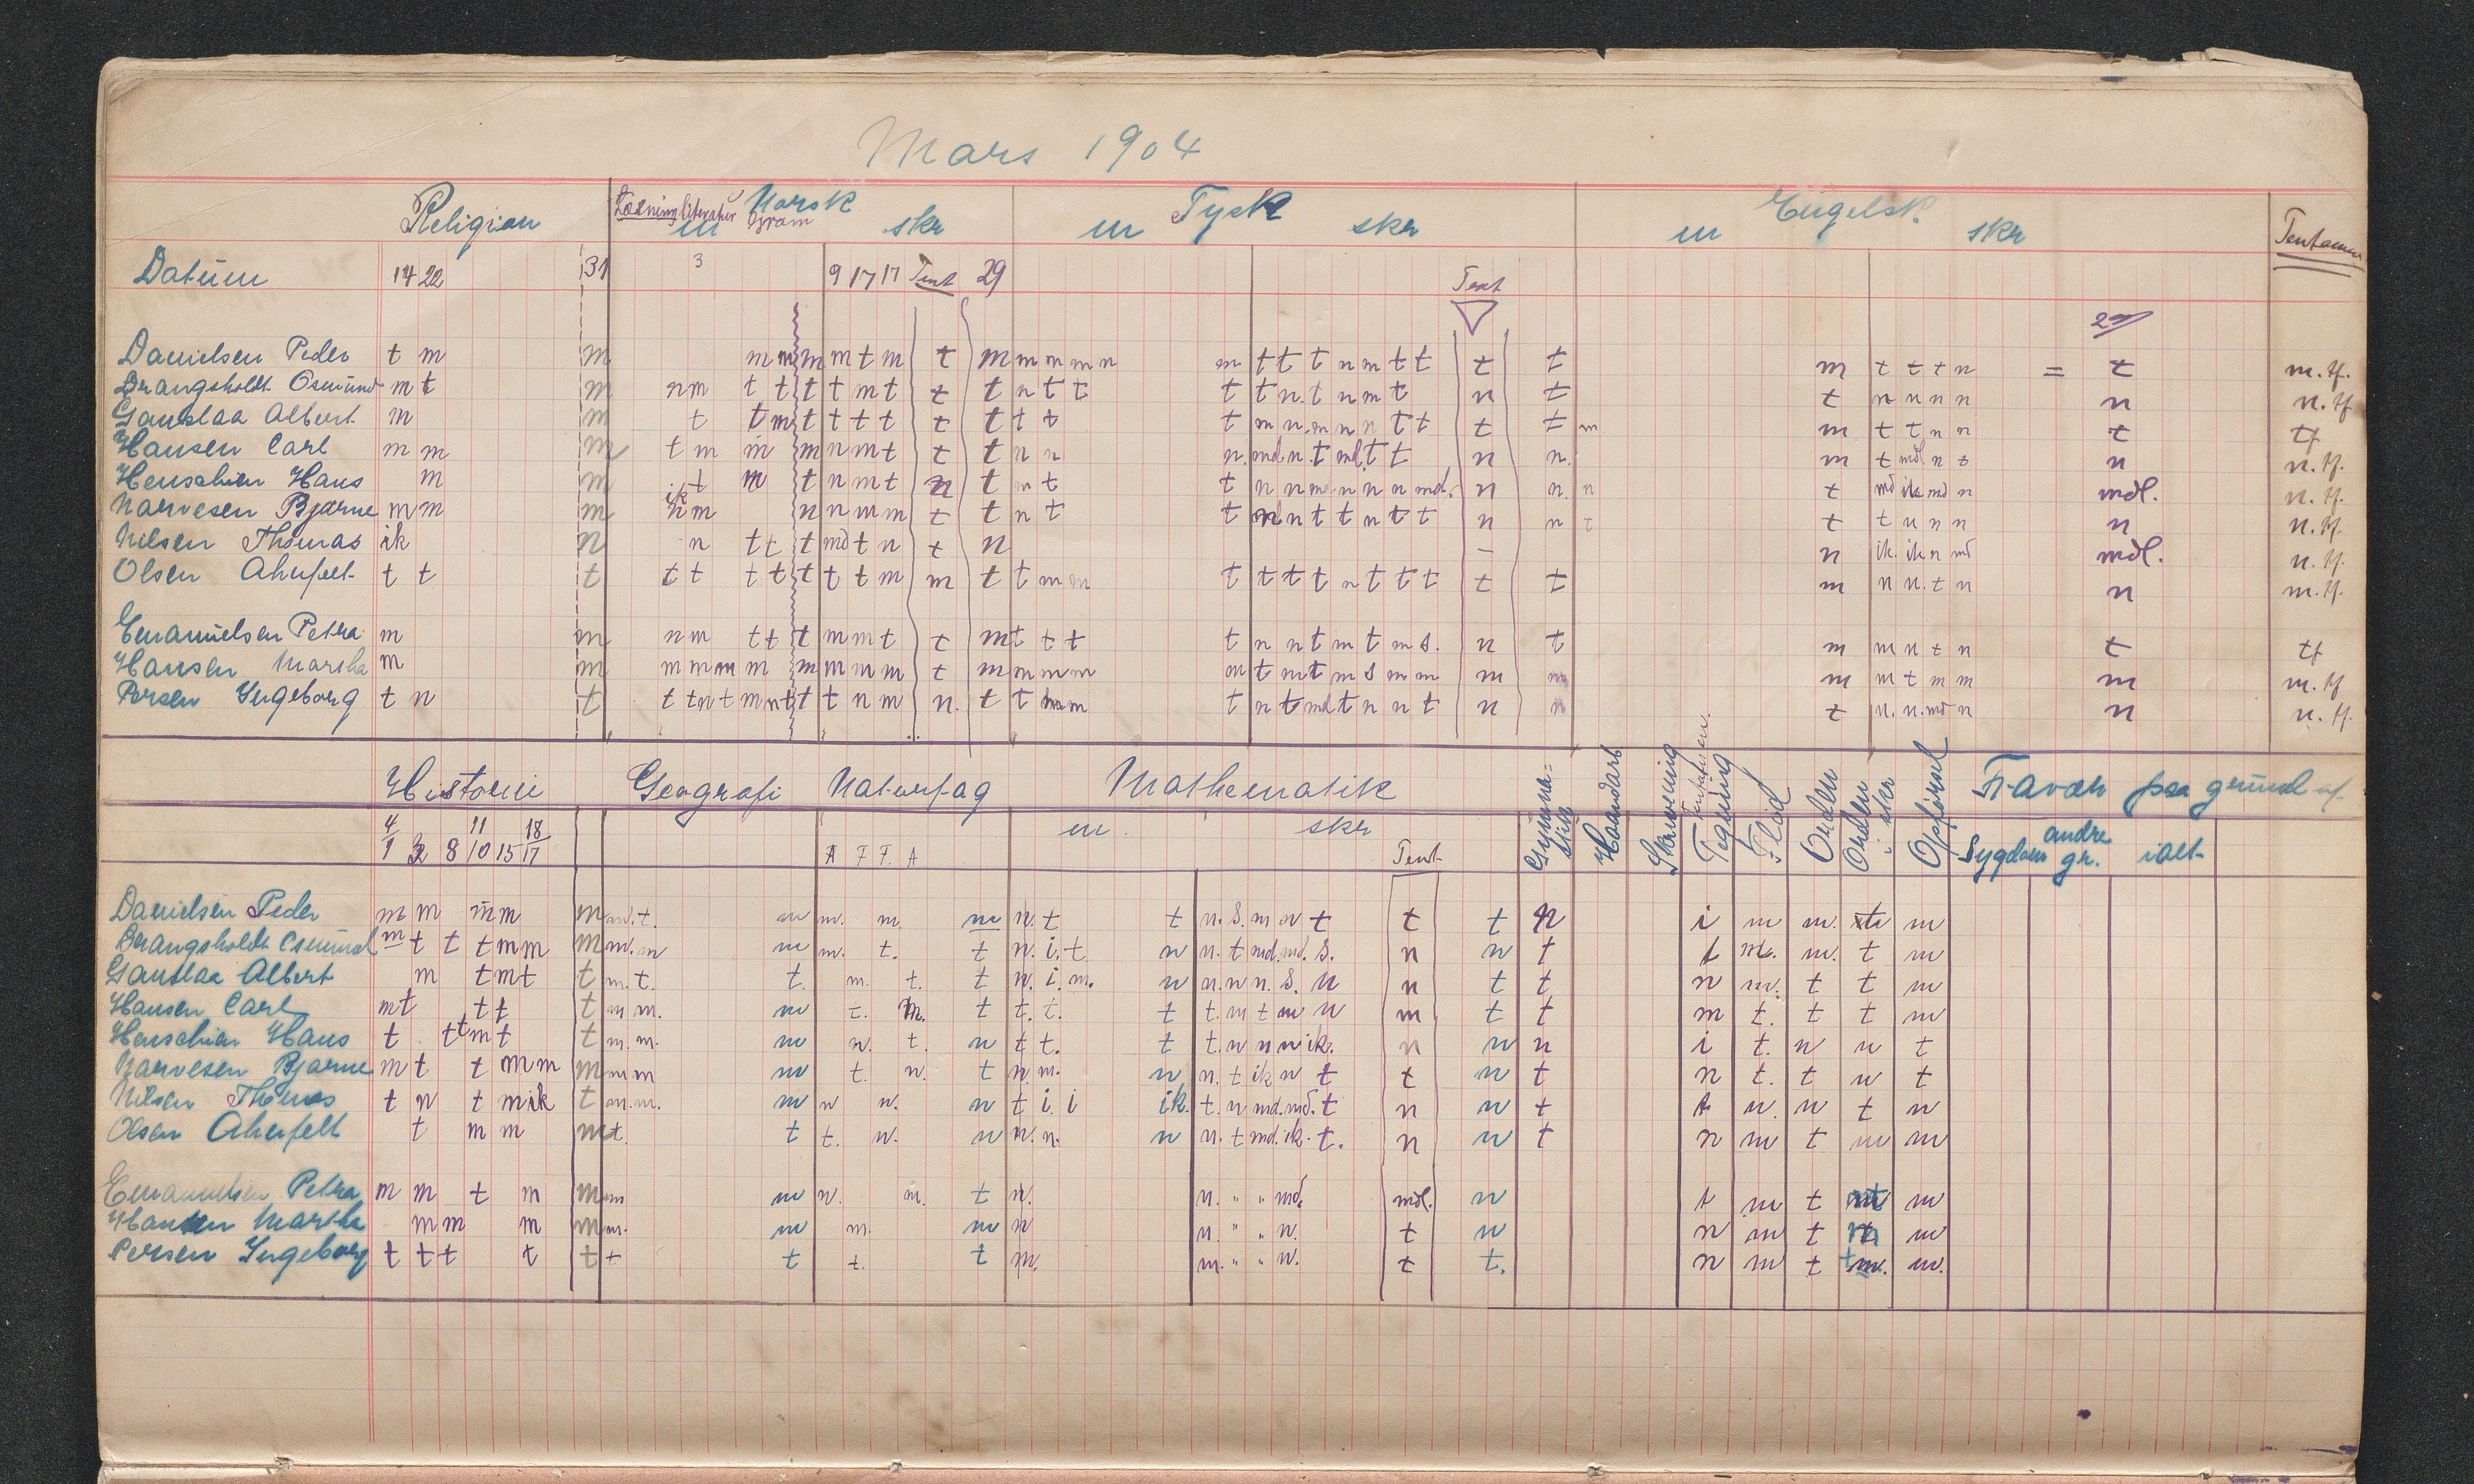 Mars 1904
Religion Læsning literatur Norsk Gram m skr Tysk m skr Engelsk m skr Tentamen
Datum 14 22 31 3 9 17 17 Tent 29 Tent
27
Danielsen Peder t m m m m m m t m t m m m m n m t t t n m t t t t m t t t n = t m. tf.
Drangsholdt Osmund m t m n m t t t t m t t t n t t t t n. t n m t n t t n n n n n n. tf
Gauslaa Albert m m t t m t t t t t t t t t m n. m n n t t t t m m t t n n t tf
Hansen Carl m m m t m m m n m t t t n n n. md. n. t md. t t n n. m t mdl n t n n. tf.
Henschien Hans m m t m t n m t n t m t t n n md n n n md. n n. n t md ik md n mdl. n. tf.
Narvesen Bjarne m m m ik n m n n m m t t n t t n t t n t t n n t t t n n n n n. tf.
Nilsen Thomas ik n n t t t md t n t n – n ik. ik n md mdl. n. tf.
Olsen Ahnfelt t t t t t t t t t t m m t t m m t t t t n t t t t t m n n. t n n m. tf.
Emanuelsen Petra m m n m t t t m m t t m t t t t n n t m t m s. n t m m n t n t tf
Hansen Martha m m m m m m m m m m t m m m m m t m t m s m m m m m m t m m m m. tf
Persen Ingeborg t n t t t n t m n t t t n m n. t t m m t n t md t n n t n n t n. n. md n n n. tf.
Historie Geografi Naturfag Mathematik m. skr Tent Gymna= stik Haandarb Skrivning Tegning Tentamen. Flid Orden Orden i skr Opførsel Fravær paa grund af
4/1 2 8 11/10 15 18/17 A F F. A Sygdom andre gr. ialt
Danielsen Peder m m m m m m. t. m m. m. m n. t t n. s. m n t t t n i m m. m
Drangsholdt Osmund m t t t m m m m. m m m. t. t n. i. t n n. t md. md. s. n n t t m. m. t m
Gauslaa Albert m t m t t m. t. t. m. t. t n. i. m. n n. n n. s. n n t t n m. t t m
Hansen Carl m t t t t m m. m t. m. t t. t. t t. m t m n m t t m t. t t m
Henschien Hans t t t m t t m. m. m n. t. n t t. t t. n n n ik. n n n i t. n n t
Narvesen Bjarne m t t m m m m m m t. n. t n. m. n n. t ik n t t n t n t. t n t
Nilsen Thomas t n t m ik t m. m. m n n. n t i. i ik. t. n md. md. t n n t t n. n t n
Olsen Ahnfelt t m m m t. t t. n. n n. n. n n. t md. ik. t. n n t n m t m m
Emanuelsen Petra m m t m m m m n. m. t n. n. " " md. mdl. n t m t m
Hansen Martha m m m m m. m m. m n n. " " n. t n n m t m
Persen Ingeborg t t t t t t t t. t m. m. " " n. t t. n m t m. m.